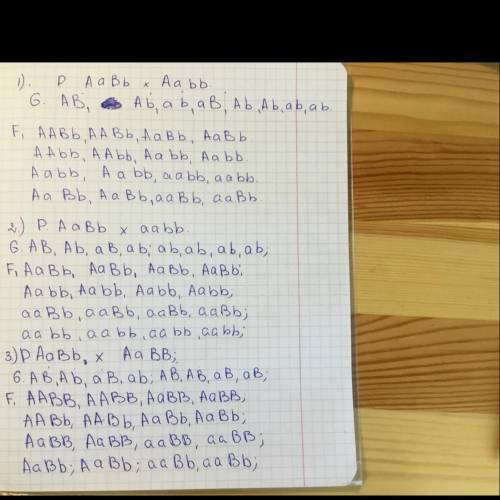 1). P AaBb × Aabb
G. AB, Ab, ab, aB; Ab, Ab, ab, ab.
F₁ AABb, AABb, AaBb, AaBb
AAbb, AAbb, Aabb, Aabb.
Aabb, Aabb, aabb, aabb.
AaBb, AaBb, aaBb, aaBb.
2.) P. AaBb × aabb.
G. AB, Ab, aB, ab; ab, ab, ab, ab;
F₁ AaBb, AaBb, AaBb, AaBb;
Aabb, Aabb, Aabb, Aabb;
aaBb, aaBb, aaBb, aaBb;
aabb, aabb, aabb, aabb;
3) P AaBb, × AaBB;
G. AB, Ab, aB, ab; AB, AB, aB, aB;
F₁ AABB, AABB, AaBB, AaBB,
AABb, AABb, AaBb, AaBb;
AaBB, AaBB, aaBB, aaBB;
AaBb; AaBb; aaBb, aaBb;